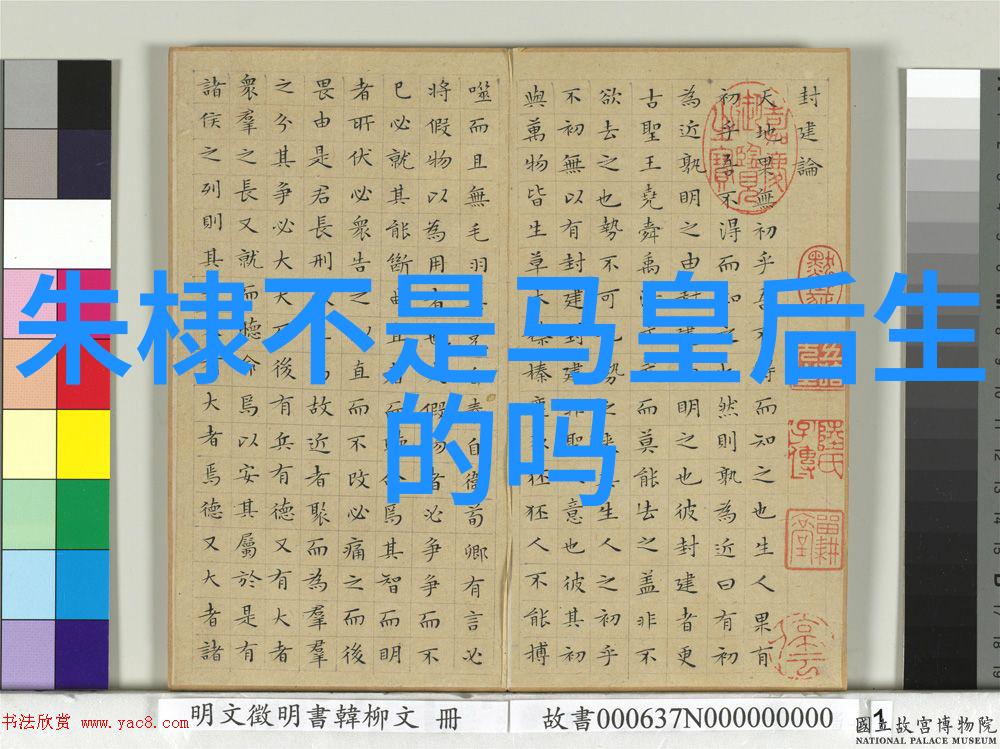 朱棣不是马皇后生
的吗
封建論
天地果無初乎吾不得而知之也生人果有
初乎吾不得而知之也然則孰為近曰有初
為近孰明之由封建而明之也彼封建者更
古聖王堯舜禹而莫能去之蓋非不
欲去之也勢不可勢之來其生人之初乎
不初無以有封建封建非聖人意也彼其初
與萬物皆生草木榛榛狉人不能搏
噬而且無毛羽自奉自衛荀卿有言必
將假物以為用者也假物者必爭爭而不
已必就其能斷曲直者而聽命焉其智而明
者所伏必衆告之以直而不改必痛之而後
畏由是君長刑焉故近者聚而為羣
之分其爭必大大而後有兵有德又有大者
衆羣之長又就而聽命焉以安其屬於是有
諸侯之列則其大者焉德又大者諸
嘉慶御覽之寶
明文徵明書韓柳文 冊
故書000637N000000000
1
國立故宮博物院
NATIONAL PALACE MUSEUM
书法欣赏 www.yac8.com